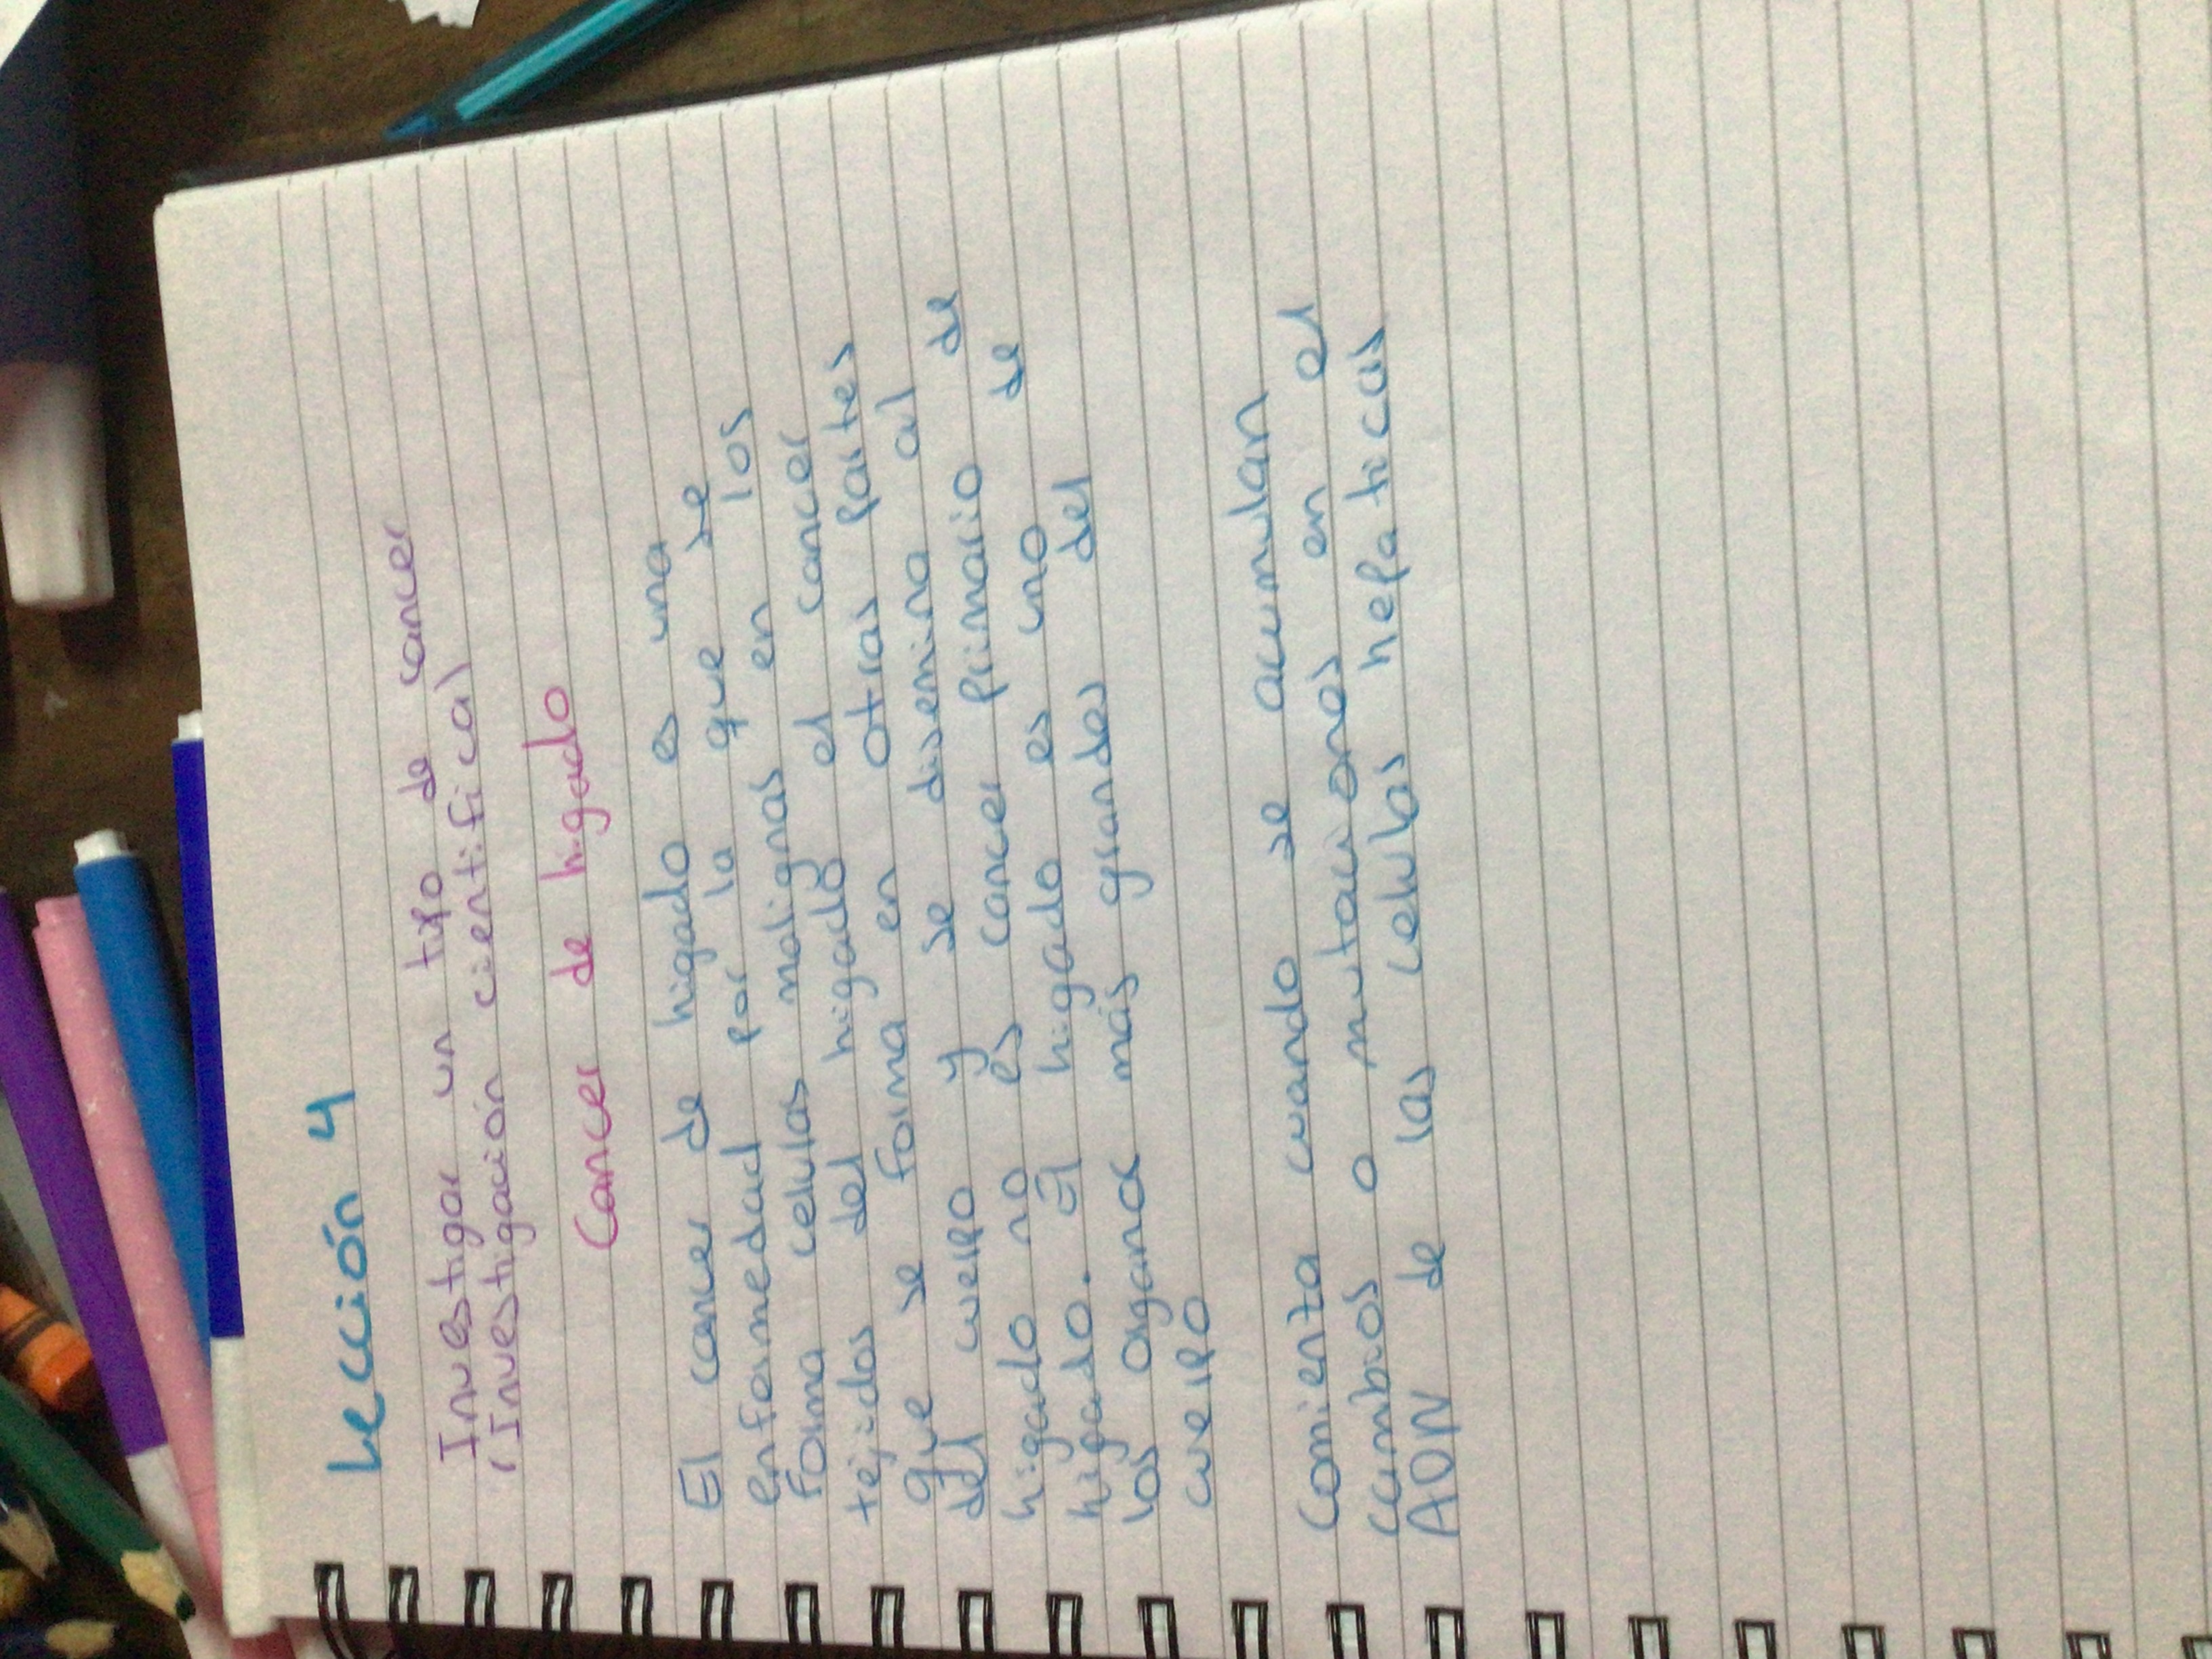 Lección 4
Investigar un tipo de cancer
(Investigación cientifica)
Cancer de higado
El cancer de higado es una
enfermedad por la que se
forma celulas malignas en los
tejidos del higado el cancer
que se forma en otras partes
del cuerpo y se disemina al
higado no es cancer primario de
higado. El higado es uno de
los organos más grandes del
cuerpo
Comienza cuando se acumulan
cambios o mutaciones en el
ADN de las celulas hepaticas